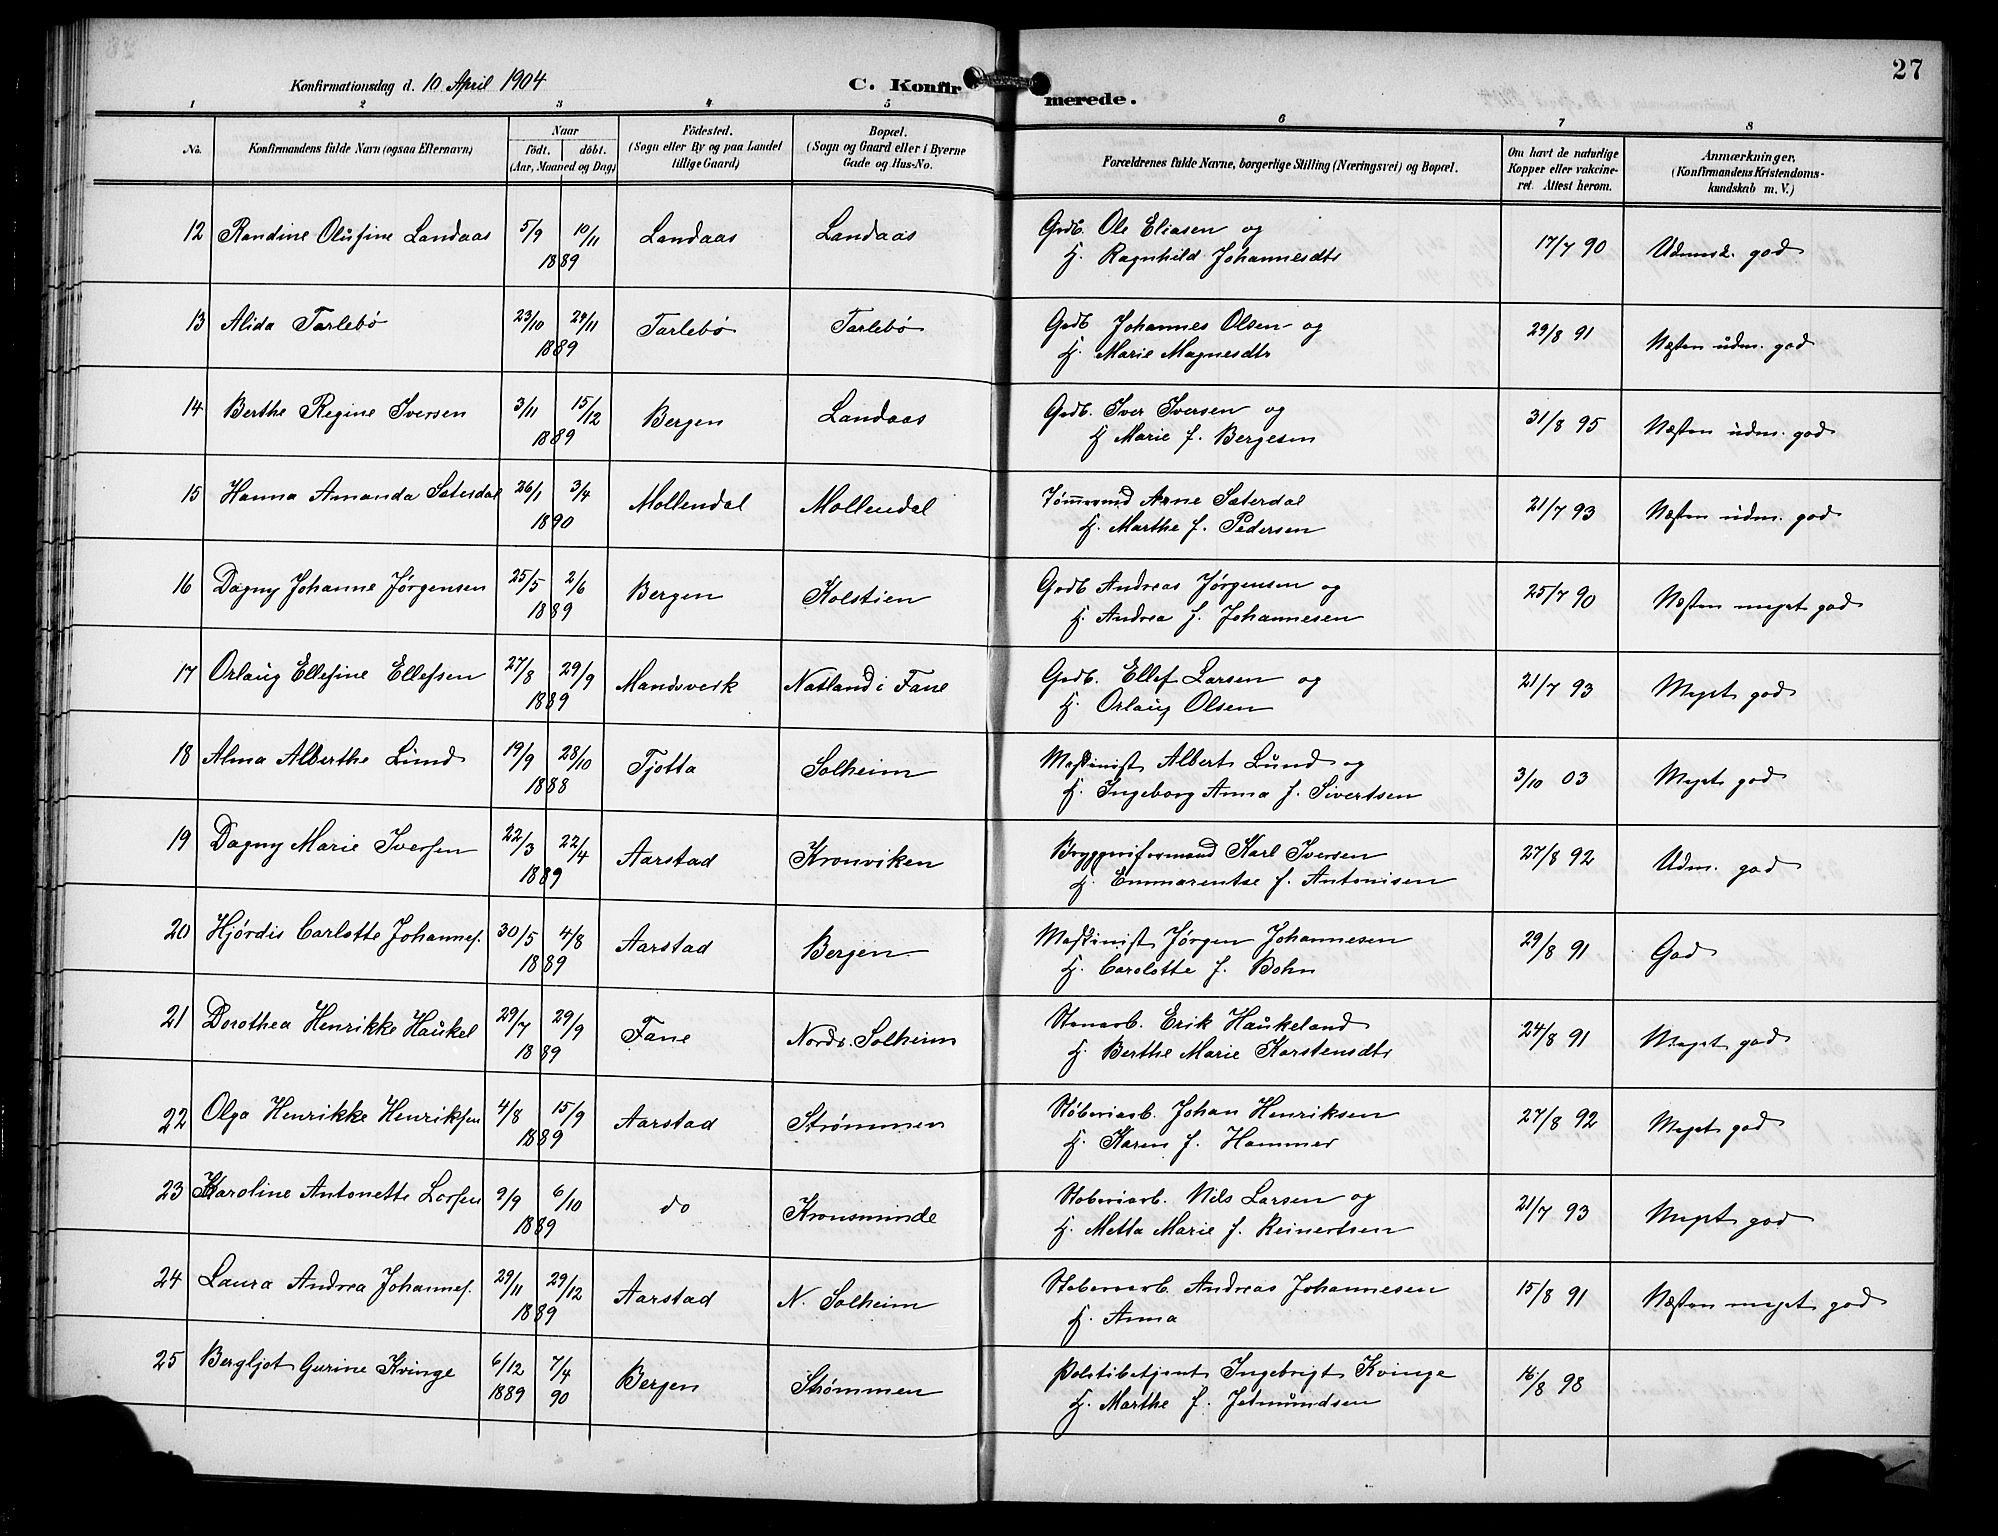 27
Konfirmationsdag d. 10 April 1904
C. Konfirmerede.
1 2 3 4 5 6 7 8
No. Konfirmandens fulde Navn (ogsaa Efternavn) Naar födt. döbt. (Aar, Maaned og Dag) Födested. (Sogn eller By og paa Landet tillige Gaard) Bopæl. (Sogn og Gaard eller i Byerne Gade og Hus-No. Forældrenes fulde Navne, borgerlige Stilling (Næringsvei) og Bopæl. Om havt de naturlige Kopper eller vakcineret. Attest herom. Anmærkninger, (Konfirmandens Kristendomskundskab m. V.)
12 Randine Olufine Landaas 5/9 10/11 Landaas Landaas Grdb. Ole Eliasen og 17/7 90 Udmrk. god
1889 H. Ragnhild Johannesdtr
13 Alida Tarlebø 23/10 24/11 Tarlebø Tarlebø Grdb Johannes Olsen og 29/8 91 Næsten udm. god
1889 H. Marie Magnesdtr
14 Berthe Regine Iversen 3/11 15/12 Bergen Landaas Grdb. Iver Iversen og 31/8 95 Næsten udm. god
1889 H Marie f. Bergesen
15 Hanna Amanda Sæterdal 26/1 3/4 Møllendal Møllendal Tømmermd Arne Sæterdal 21/7 93 Næsten udm. god
1890 H. Marthe f. Pedersen
16 Dagny Johanne Jørgensen 25/5 2/6 Bergen Kolstien Grdb Andreas Jørgensen og 25/7 90 Næsten meget god
1889 H. Andrea f. Johannesen
17 Orlaug Ellefine Ellefsen 27/8 29/9 Mandsverk Natland i Fane Grdb. Ellef Larsen og 21/7 93 Meget god
1889 H. Orlaug Olsen
18 Alma Alberthe Lund 19/9 28/10 Tjøtta Solheim Maskinist Albert Lund og 3/10 03 Meget god
1888 H. Ingeborg Anna f. Sivertsen
19 Dagny Marie Iversen 22/3 22/4 Aarstad Kronviken Bryggeriformand Karl Iversen 27/8 92 Udm. god
1889 H. Emmarentse f. Antonisen
20 Hjørdis Carlotte Johannes. 30/5 4/8 Aarstad Bergen Maskinist Jørgen Johannesen 29/8 91 God
1889 H. Carolotte f. Bohn
21 Dorothea Henrikke Haukel 29/7 29/9 Fane Nordr. Solheim Stenarb. Erik Haukeland 24/8 91 Meget god
1889 H. Berthe Marie Karstensdtr
22 Olga Henrikke Henriksen 4/8 15/9 Aarstad Strømmen Støberiarb. Johan Henriksen 27/8 92 Meget god
1889 H. Karen f. Hammer
23 Karoline Antonette Larsen 9/9 6/10 do Kronsminde Støberiarb. Nils Larsen og 21/7 93 Meget god
1889 H. Metta Marie f. Reinertsen
24 Laura Andrea Johannes. 29/11 29/12 Aarstad N. Solheim Støberiarb. Andreas Johannesen 15/8 91 Næsten meget god
1889 H. Anna
25 Bergljot Gurine Kvinge 6/12 7/4 Bergen Strømmen Politibetjent Ingebrigt Kvinge 16/8 98
1889 90 H. Marthe f. Jetmundsen